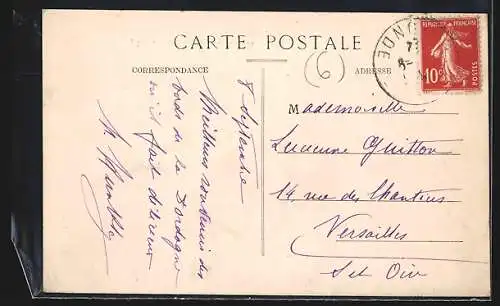 CARTE POSTALE
CORRESPONDANCE
ADRESSE
6
REPUBLIQUE FRANÇAISE
10c
POSTES
8 Septembre
Meilleurs souvenirs des
bords de la Dordogne
où il fait délicieux
M.
Mademoiselle
Lucienne Guitton
14, rue des Chantiers
Versailles
Set Oise